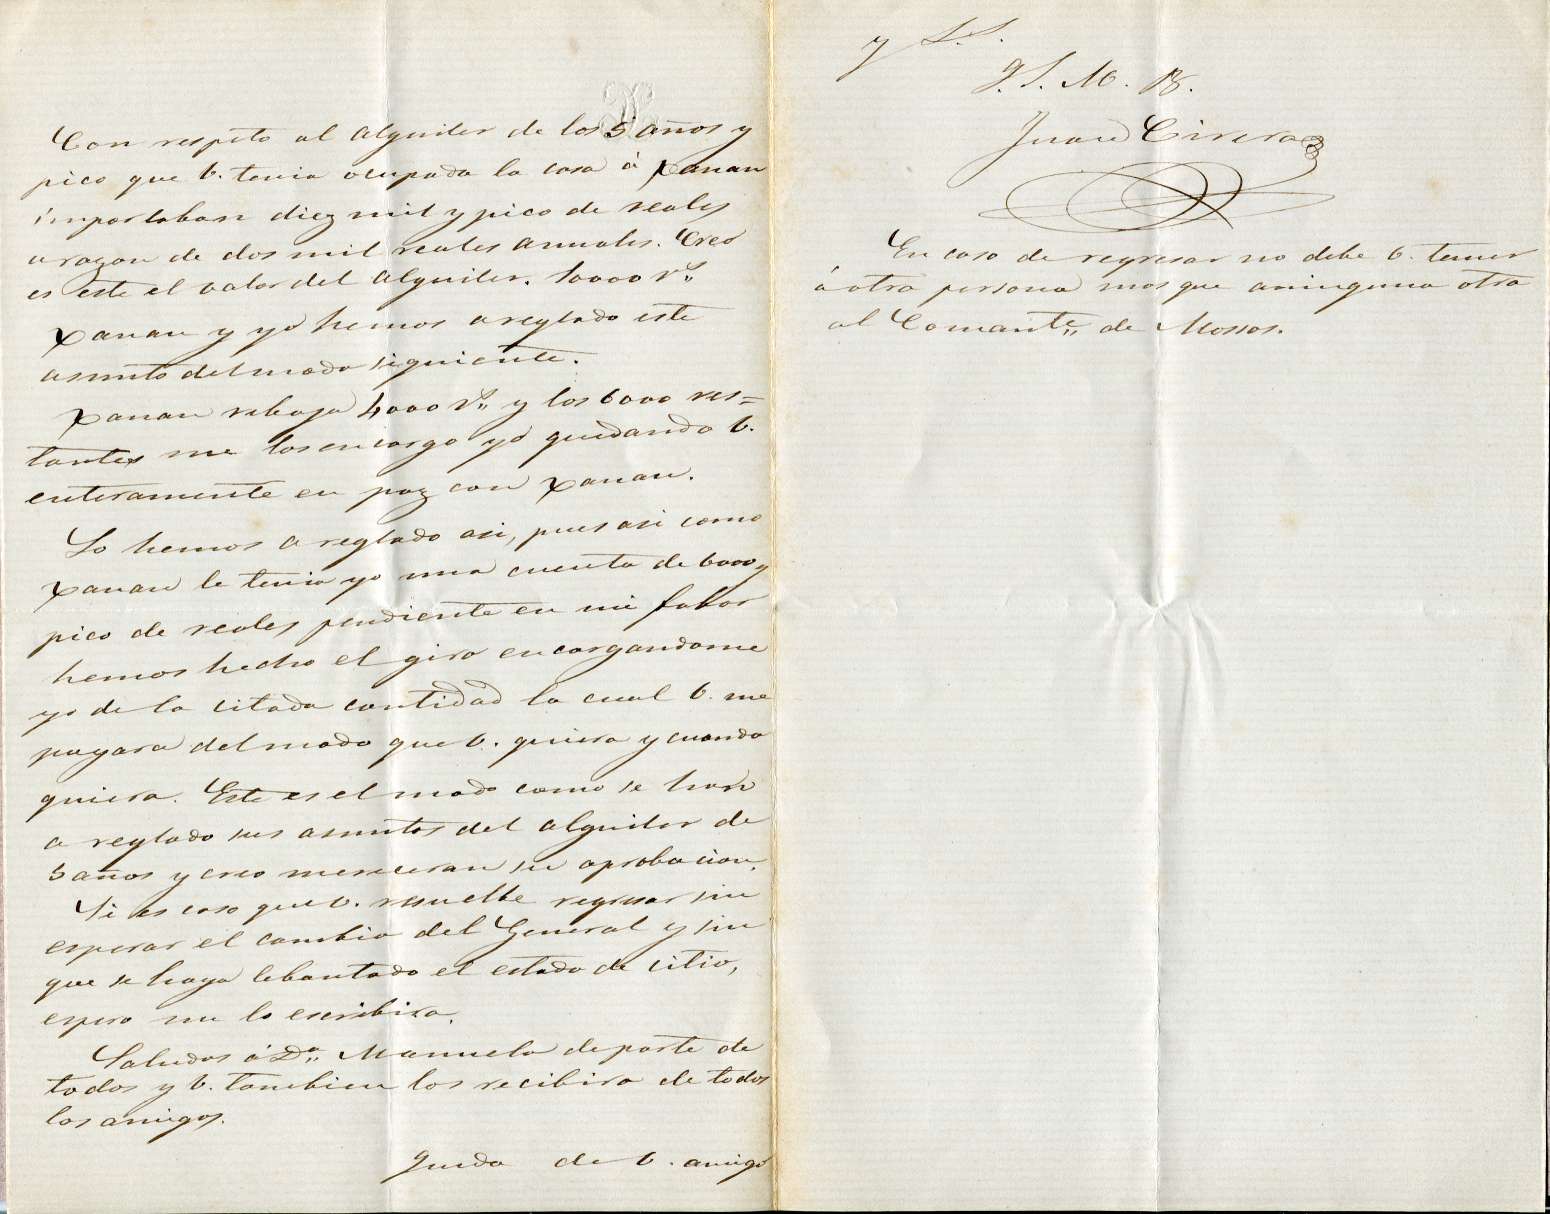 Con respeto al alquiler de los 5 años y
pico que V. tenia ocupada la casa á Xanan
importaban diez mil y pico de reales
a razon de dos mil reales anuales. Creo
es este el valor del alquiler. 10000 rs.
Xanan y yo hemos areglado este
asunto del modo siguiente.
Xanan rebaja 4000 rs. y los 6000 res=
tantes me los encargo yo quedando V.
enteramente en paz con Xanan.
Lo hemos areglado asi, pues asi como
Xanan le tenia yo una cuenta de 6000 y
pico de reales pendiente en mi fabor
hemos hecho el giro encargandome
yo de la citada cantidad la cual V. me
pagara del modo que V. quiera y cuando
quiera. Este es el modo como se han
areglado sus asuntos del alquiler de
5 años y creo mereceran su aprobacion.
Si es caso que V. resuelbe regresar sin
esperar el cambio del General y sin
que se haya lebantado el estado de sitio,
espero me lo escribira.
Saludos á Da. Manuela de parte de
todos y V. tambien los recibira de todos
los amigos.
Queda de V. amigo
y S. S.
q. S. M. B.
Juan Cirera
En caso de regresar no debe V. temer
á otra persona mas que aninguna otra
al Comante. de Mossos.